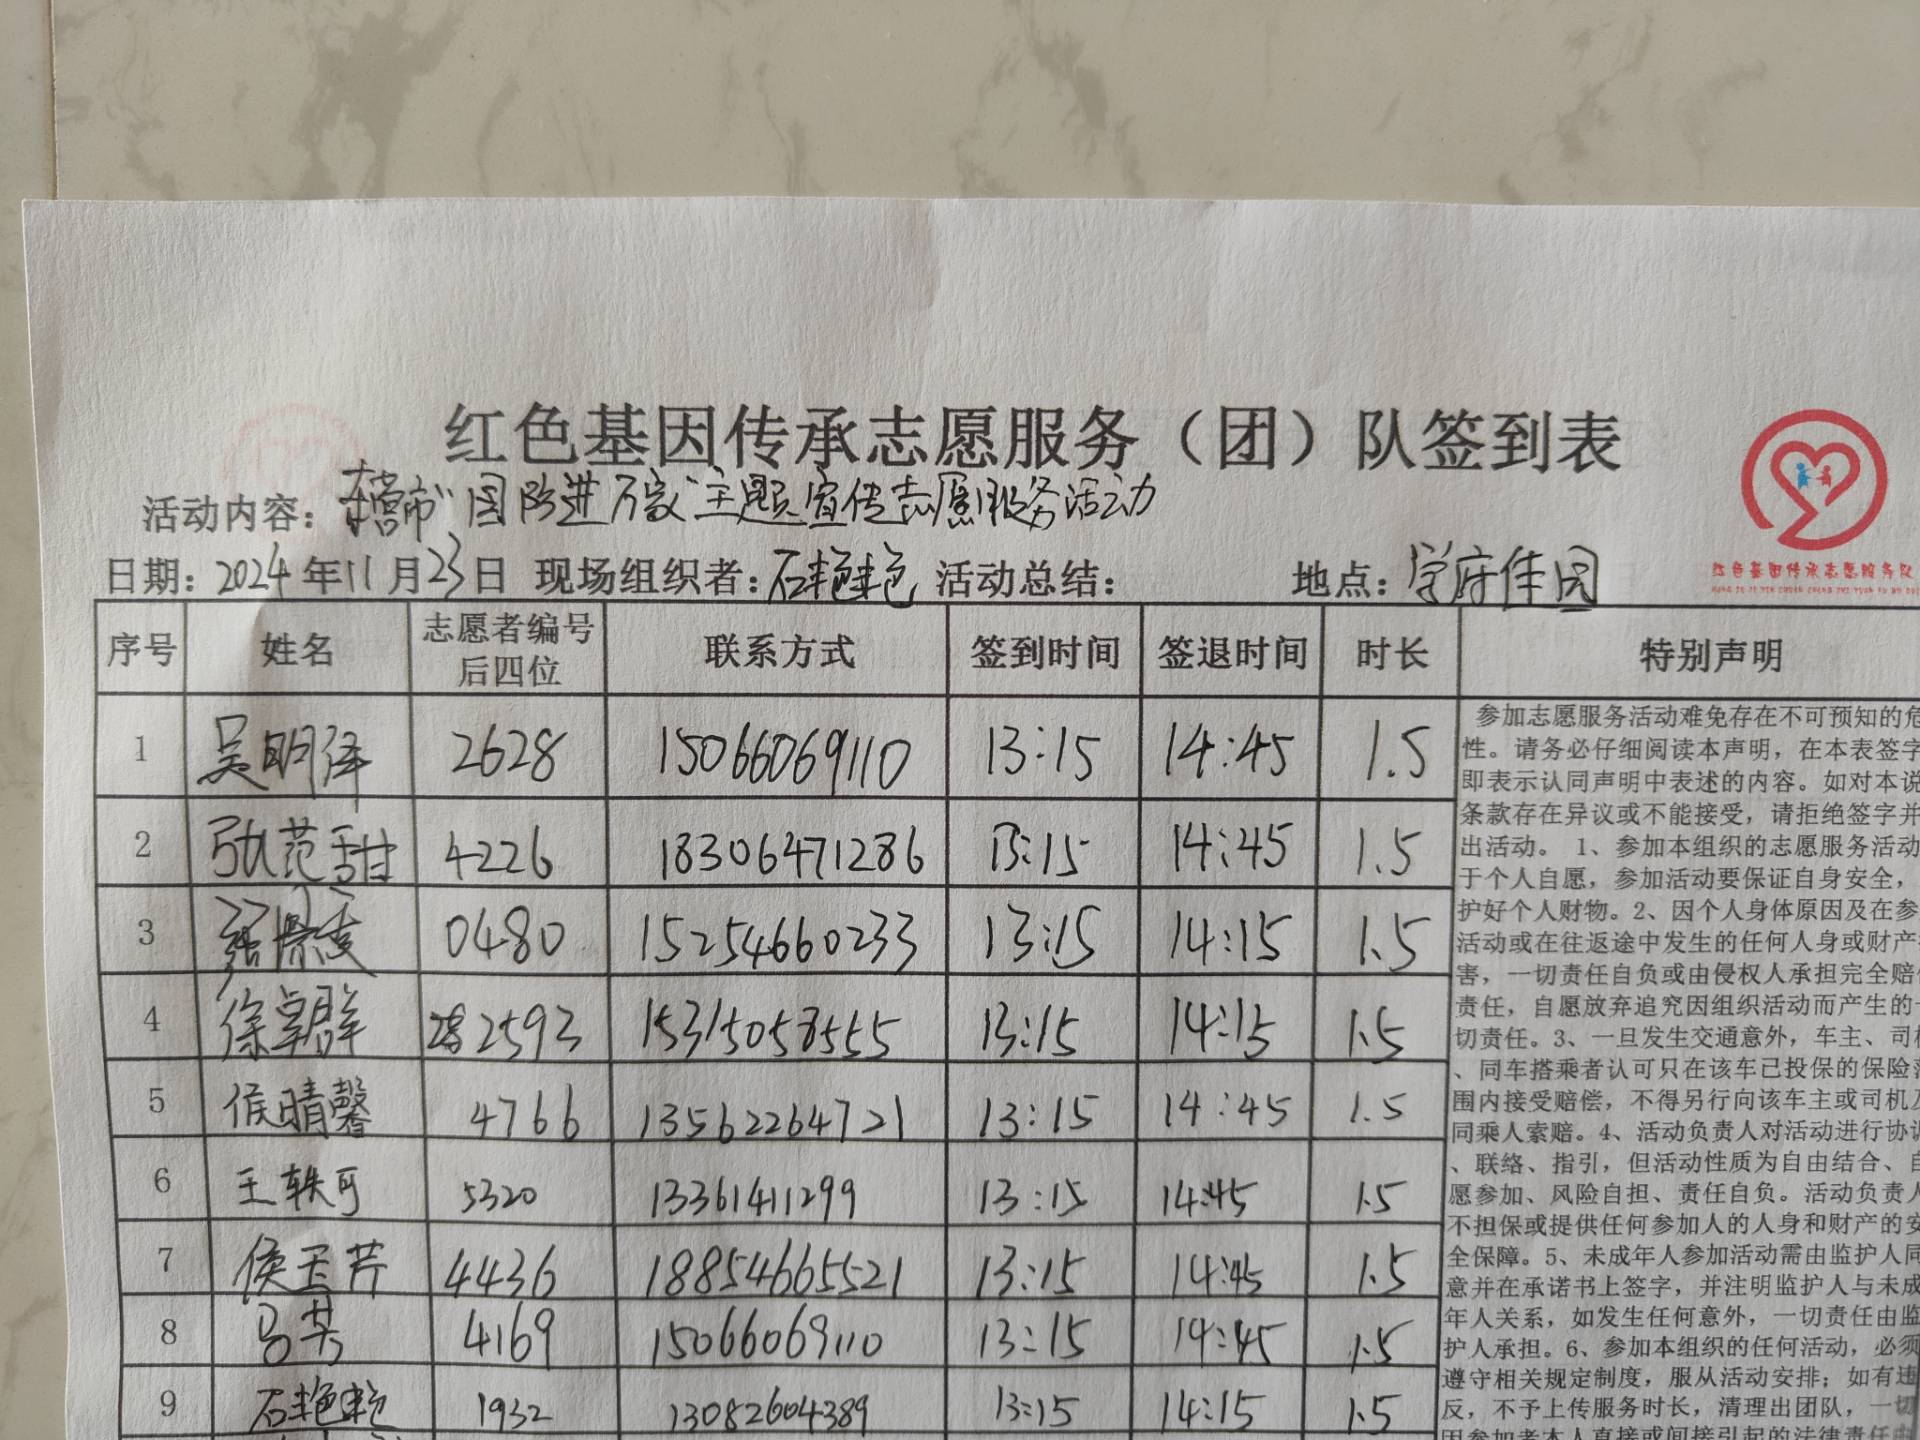 红色基因传承志愿服务（团）队签到表
活动内容：东营市"国防进万家"主题宣传志愿服务活动
日期：2024年11月23日 现场组织者：石艳艳 活动总结： 地点：学府佳园
红色基因传承志愿服务队
序号 姓名 志愿者编号后四位 联系方式 签到时间 签退时间 时长 特别声明
1 吴明泽 2628 15066069110 13:15 14:45 1.5
2 范甜 4226 18306471286 13:15 14:45 1.5
3 0480 15254660233 13:15 14:15 1.5
4 徐卓群 2593 15315058555 13:15 14:15 1.5
5 侯晴馨 4766 13562264721 13:15 14:45 1.5
6 王轶可 5320 13361411299 13:15 14:45 1.5
7 侯玉芹 4436 18854665521 13:15 14:45 1.5
8 马英 4169 15066069110 13:15 14:45 1.5
9 石艳艳 1932 13082604389 13:15 14:15 1.5
参加志愿服务活动难免存在不可预知的危
性。请务必仔细阅读本声明，在本表签字
即表示认同声明中表述的内容。如对本说
条款存在异议或不能接受，请拒绝签字并
出活动。 1、参加本组织的志愿服务活动
于个人自愿，参加活动要保证自身安全，
护好个人财物。2、因个人身体原因及在参
活动或在往返途中发生的任何人身或财产
害，一切责任自负或由侵权人承担完全赔
责任，自愿放弃追究因组织活动而产生的一
切责任。3、一旦发生交通意外，车主、司
、同车搭乘者认可只在该车已投保的保险
围内接受赔偿，不得另行向该车主或司机
同乘人索赔。4、活动负责人对活动进行协
、联络、指引，但活动性质为自由结合、自
愿参加、风险自担、责任自负。活动负责人
不担保或提供任何参加人的人身和财产的安
全保障。5、未成年人参加活动需由监护人同
意并在承诺书上签字，并注明监护人与未成
年人关系，如发生任何意外，一切责任由监
护人承担。6、参加本组织的任何活动，必须
遵守相关规定制度，服从活动安排；如有违
反，不予上传服务时长，清理出团队，一切
因参加者本人直接或间接引起的法律责任由